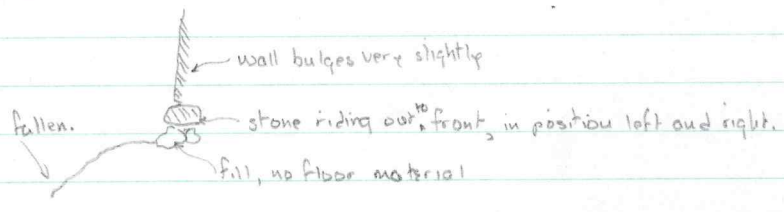 wall bulges very slightly
fallen.
stone riding out to front, in position left and right.
fill, no floor material